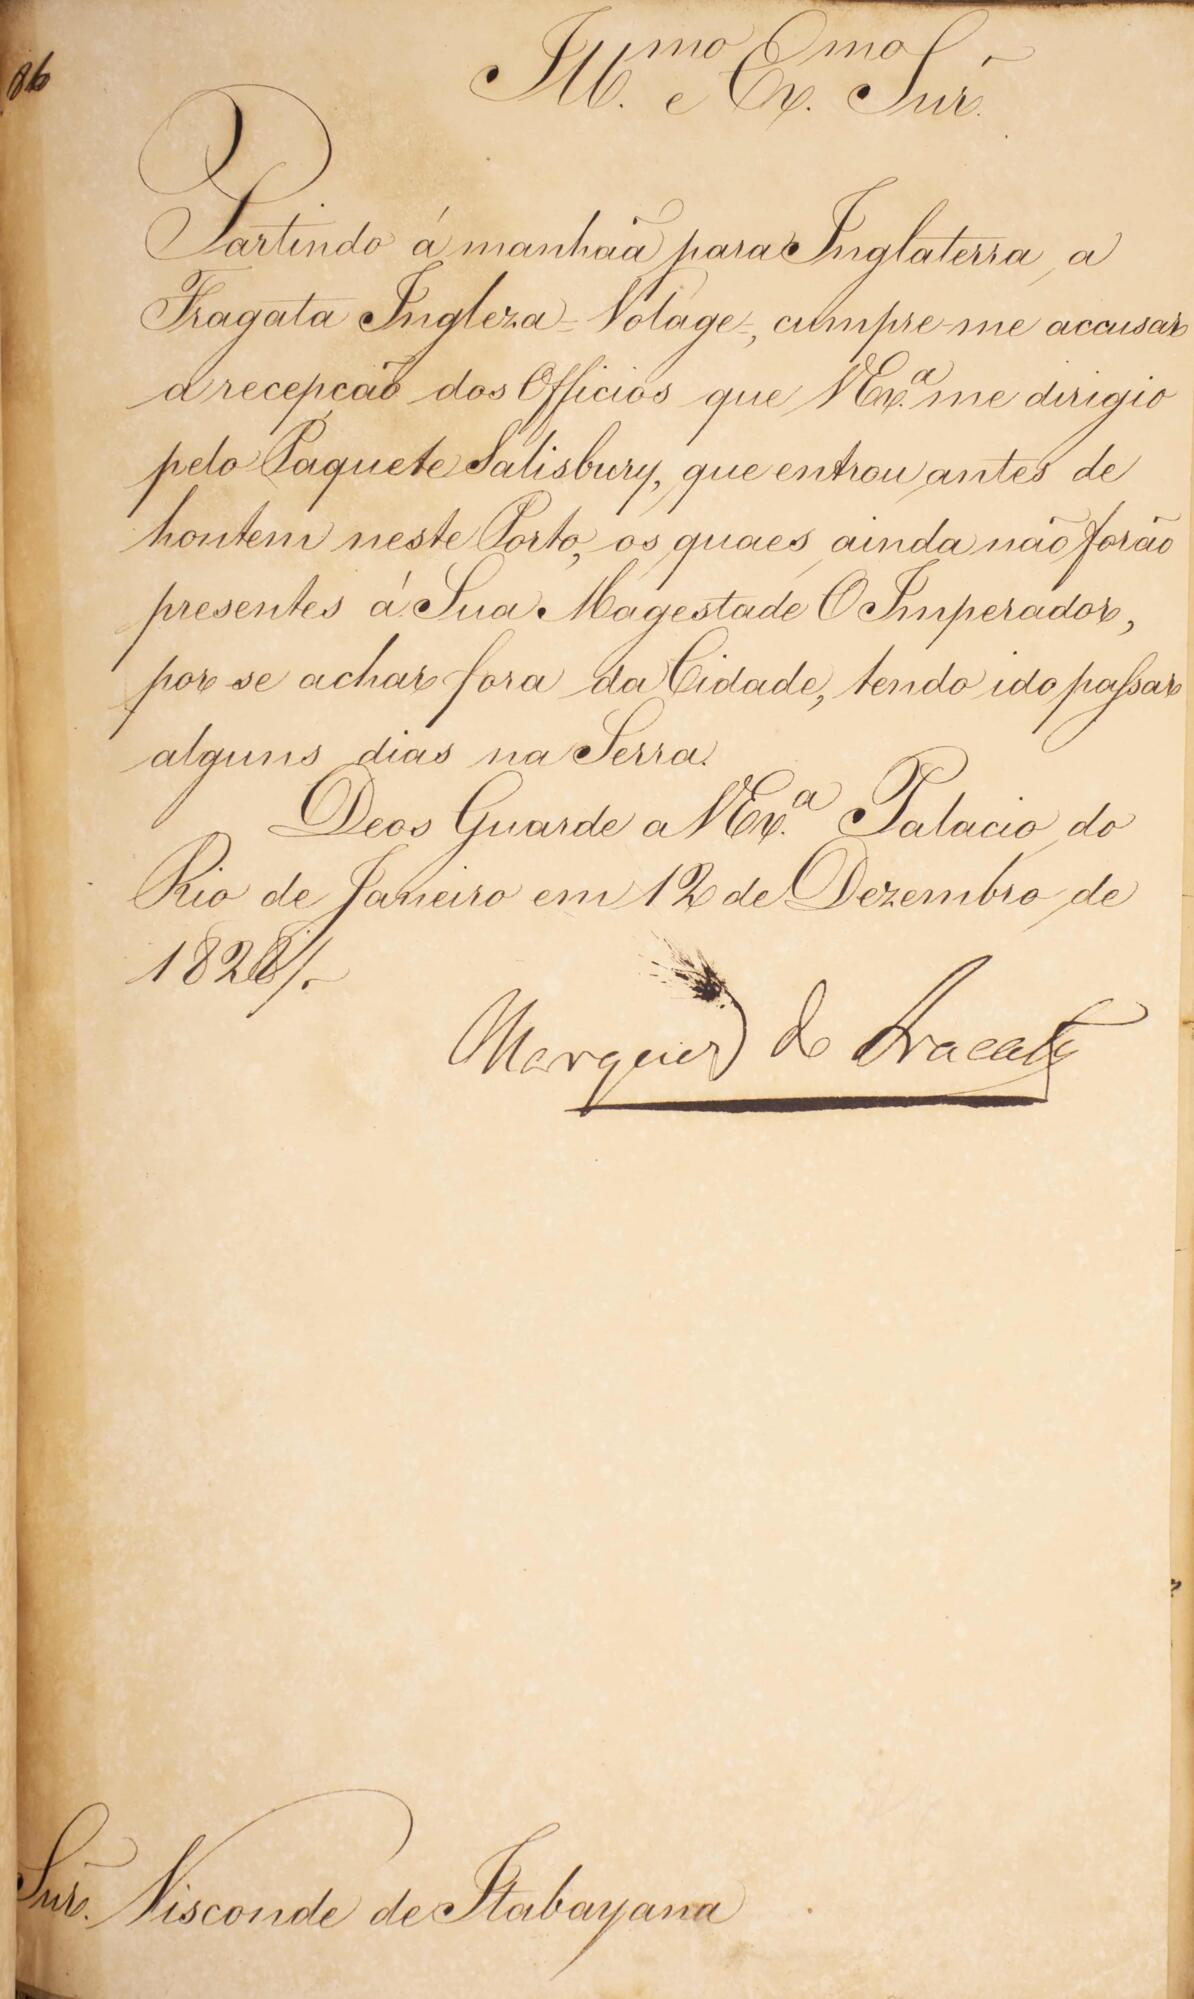 86
Ill.mo e Ex.mo Snr̃.
Partindo á manhaã para Inglaterra, a
Fragata Ingleza = Volage =, cumpre-me accusar
a recepcão dos Officios que VEx.a me dirigio
pelo Paquete Salisbury, que entrou antes de
hontem neste Porto, os quaes ainda não forão
presentes á Sua Magestade O Imperador,
por se achar fora da Cidade, tendo ido passar
alguns dias na Serra.
Deos Guarde a VEx.a Palacio do
Rio de Janeiro em 12 de Dezembro de
1828/.
Marquez de Aracaty
Snr̃. Visconde de Itabayana